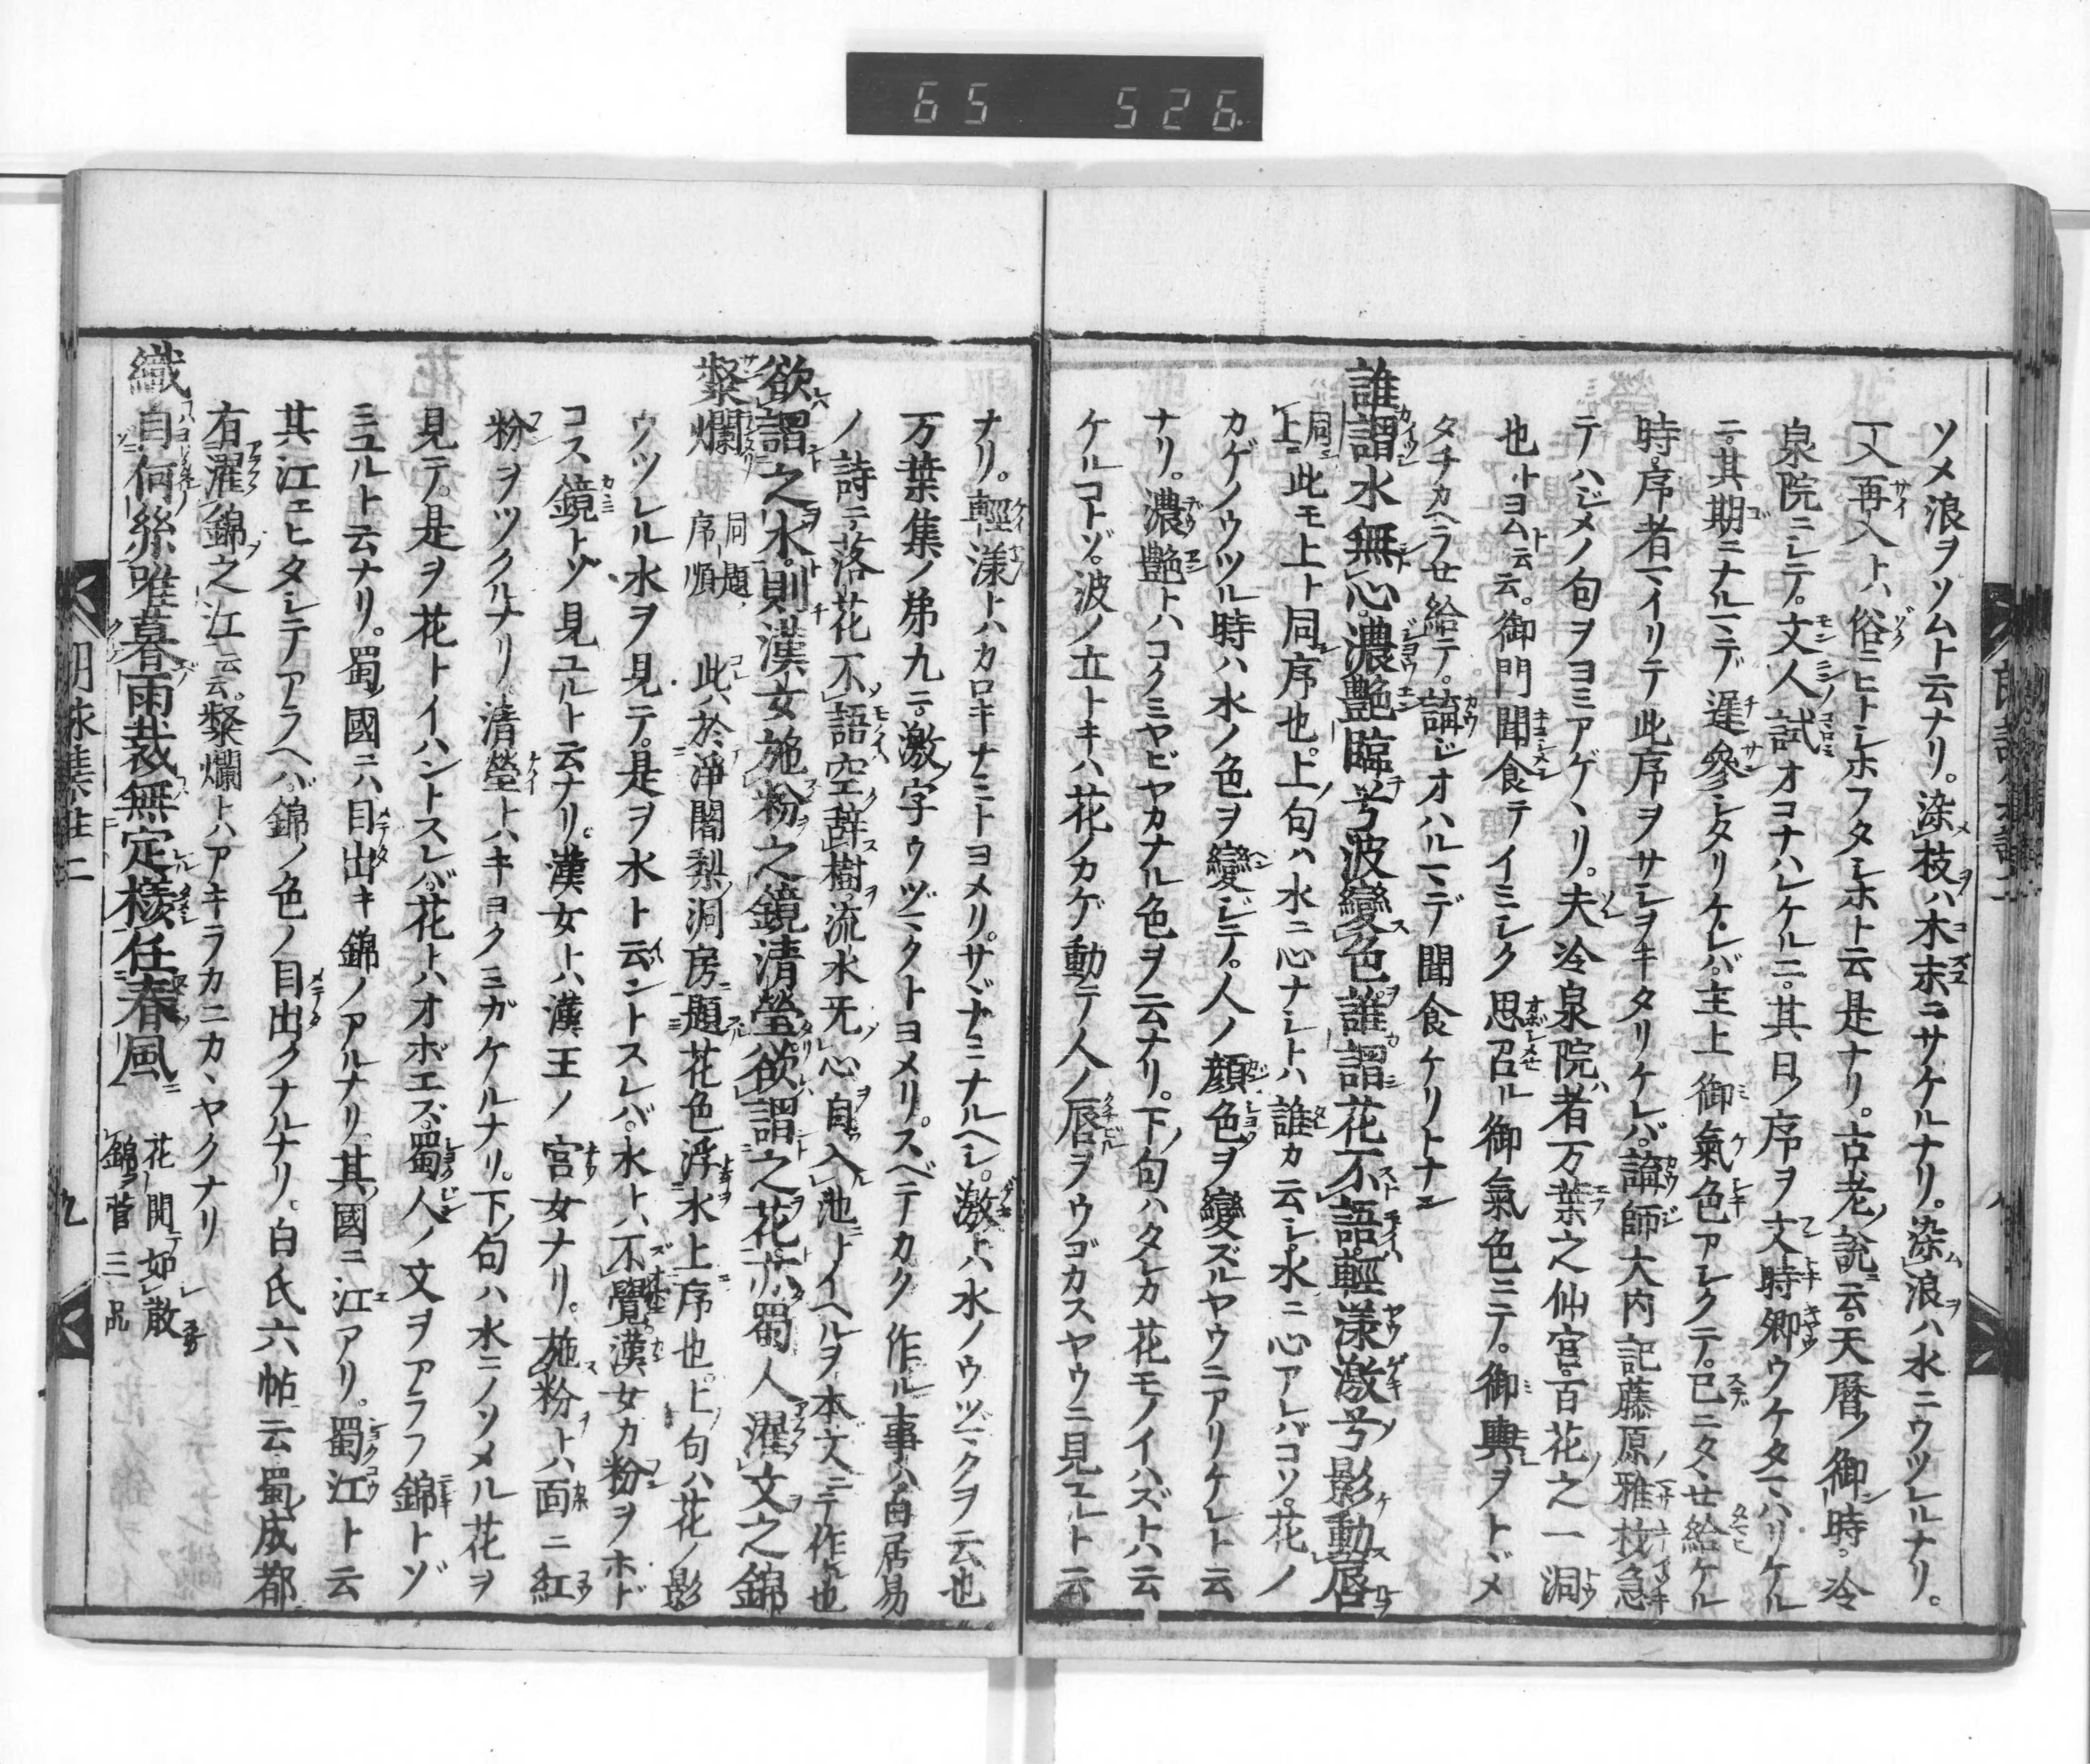 65 526
ソメ浪ヲソムト云ナリ。染枝ハ木末ニサケルナリ。染浪ハ水ニウツレルナリ。
一入再入トハ俗ニヒトシホフタシホト云是ナリ。古老ノ説云。天暦ノ御時。冷
泉院ニシテ。文人試オコナハレケルニ。其日ノ序ヲ文時卿ウケタマハリケル
ニ。其期ニナルマデ遅參シタリケレバ。主上御氣色アシクテ。已ニタヽせ給ケル
時。序者マイリテ此序ヲサシヲキタリケレバ。論師大内記藤原雅材急
テハジメノ句ヲヨミアゲヽリ。夫冷泉院者万葉之仙宮。百花之一洞
也トヨム云云。御門聞食テイミシク思召ル御氣色ニテ。御輿ヲトヾメ
タチカヘラせ給テ。論ジオハルマデ聞食ケリトナン
誰謂水無心。濃艶臨兮波變色。誰謂花不語。輕漾激兮影動唇
同上 此モ上ト同序也。上句ハ水ニ心ナシトハ誰カ云シ。水ニ心アレバコソ。花ノ
カゲノウツル時ハ水ノ色ヲ變ジテ。人ノ顔色ヲ變ズルヤウニアリケレト云
ナリ。濃艶トハコクミヤビヤカナル色ヲ云ナリ。下ノ句ハタレカ花モノイハズトハ云
ケルコトゾ。波ノ立トキハ花ノカゲ動テ人ノ唇ヲウゴカスヤウニ見ユルト云
ナリ。輕漾トハカロキナミトヨメリ。サヾナミナルヘシ。激トハ水ノウヅマクヲ云也
万葉集ノ第九ニ。激ノ字ウヅマクトヨメリ。スベテカク作ル事ハ。白居易
ノ詩ニ落花不語空辞樹。流水无心自入池トイヘルヲ本文ニテ作ル也
欲謂之水。則漢女施粉之鏡清瑩。欲謂之花。亦蜀人濯文之錦
粲爛 同題序 順 此ハ於淨闍梨洞房題花色浮水上序也。上ノ句ハ花ノ影
ウツレル水ヲ見テ。是ヲ水ト云ントスレバ。水トハ不覺漢女カ粉ヲホド
コス鏡トゾ見ユルト云ナリ。漢女トハ漢王ノ宮女ナリ。施粉トハ面ニ紅
粉ヲツクルナリ。清瑩トハキヨクミガケルナリ。下ノ句ハ水ニノソメル花ヲ
見テ。是ヲ花トイハントスレバ。花トハオボエズ。蜀人ノ文ヲアラフ錦トゾ
ミユルト云ナリ。蜀ノ國ニハ目出キ錦ノアルナリ。其國ニ江アリ。蜀江ト云
其江ニヒタシテアラヘバ。錦ノ色ノ目出クナルナリ。白氏六帖云蜀ノ成都
有濯錦之江云云。粲爛トハアキラカニカヽヤクナリ
織自何絲唯暮雨裁無定樣任春風 花開如散錦 菅三品
朗詠集註二 九